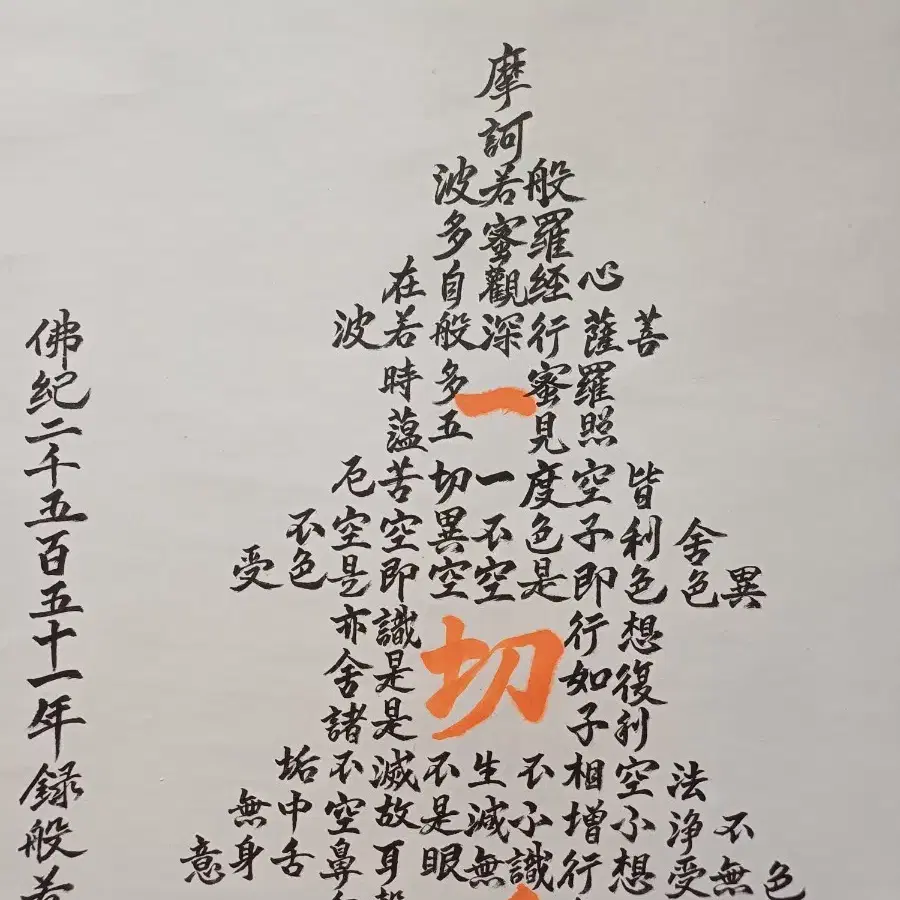 摩
訶
般若波
羅蜜多
心經觀自在
菩薩行深般若波
羅蜜多時
照見五蘊
皆空度一切苦厄
舍利子色不異空空不
異色色即是空空即是色受
想行識亦
復如是舍
利子是諸
法空相不生不滅不垢
不淨不增不減是故空中無
色無受想行識無眼耳鼻舌身意
一
切
佛紀二千五百五十一年録般若